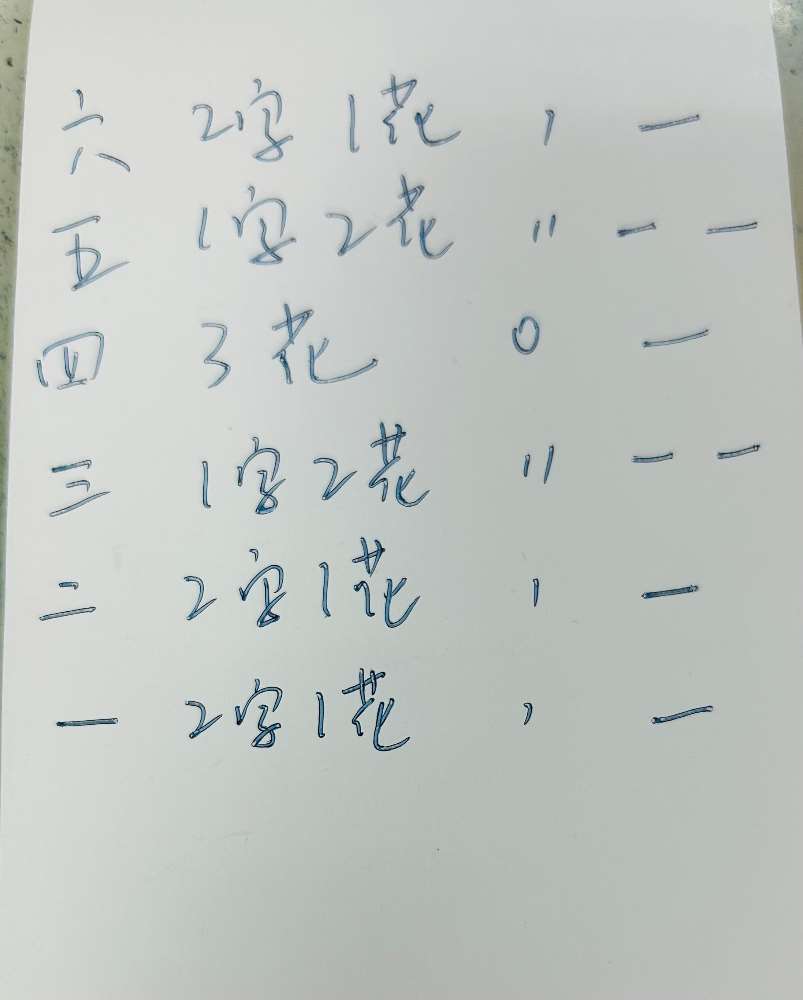 六 2字1花 ' —
五 1字2花 '' — —
四 3花 0 —
三 1字2花 '' — —
二 2字1花 ' —
一 2字1花 ' —